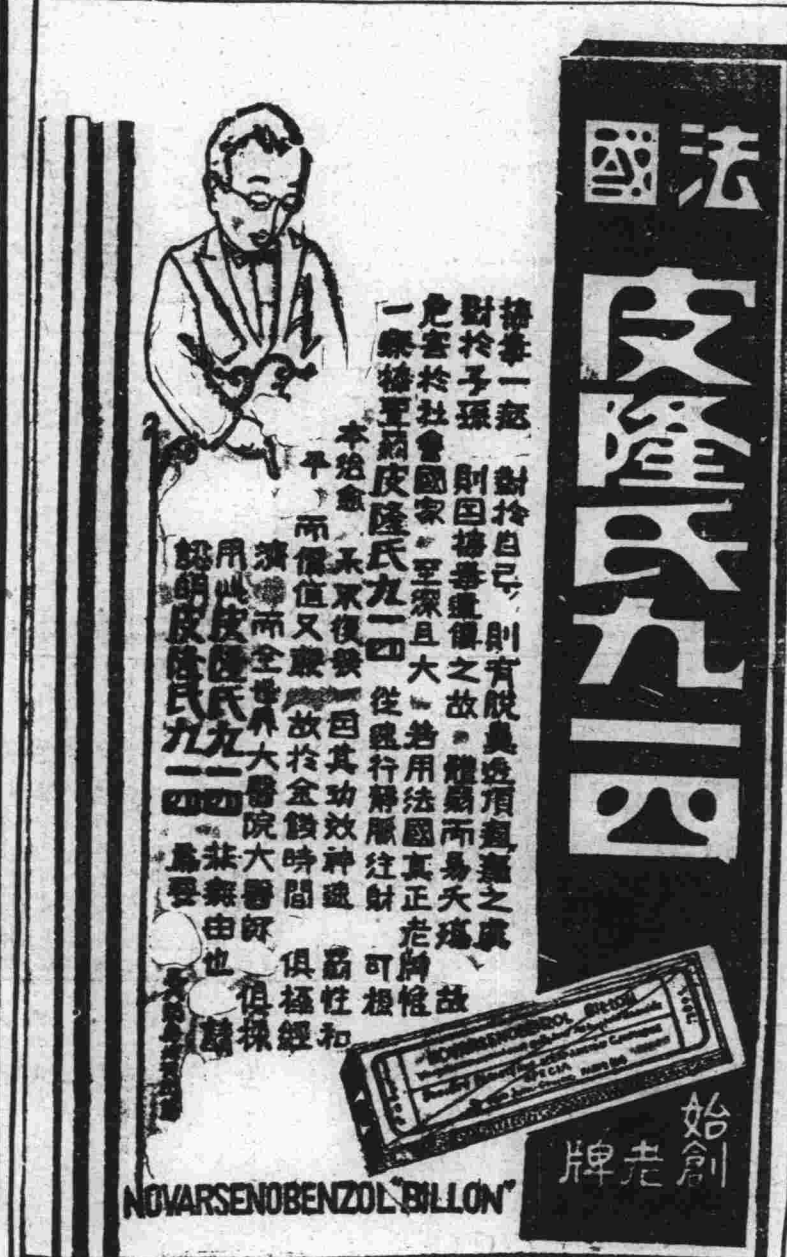 法國
皮隆氏九一四
始創
老牌
梅毒一症 對於自己 則有脫鼻透頂癱瘋之虞
對於子孫 則因梅毒遺傳之故 體弱而易夭殤 故
危害於社會國家 至深且大 若用法國真正老牌
一療梅聖藥皮隆氏九一四 從速行靜脈注射 可根
本治愈 永不復發 因其功效神速 藥性和
平 而價值又廉 故於金錢時間 俱極經
濟 而全世界大醫院大醫師 俱採
用此皮隆氏九一四 非無由也 請
認明皮隆氏九一四 為要
"NOVARSENOBENZOL BILLON"
SPECIA
PARIS
NOVARSENOBENZOL "BILLON"